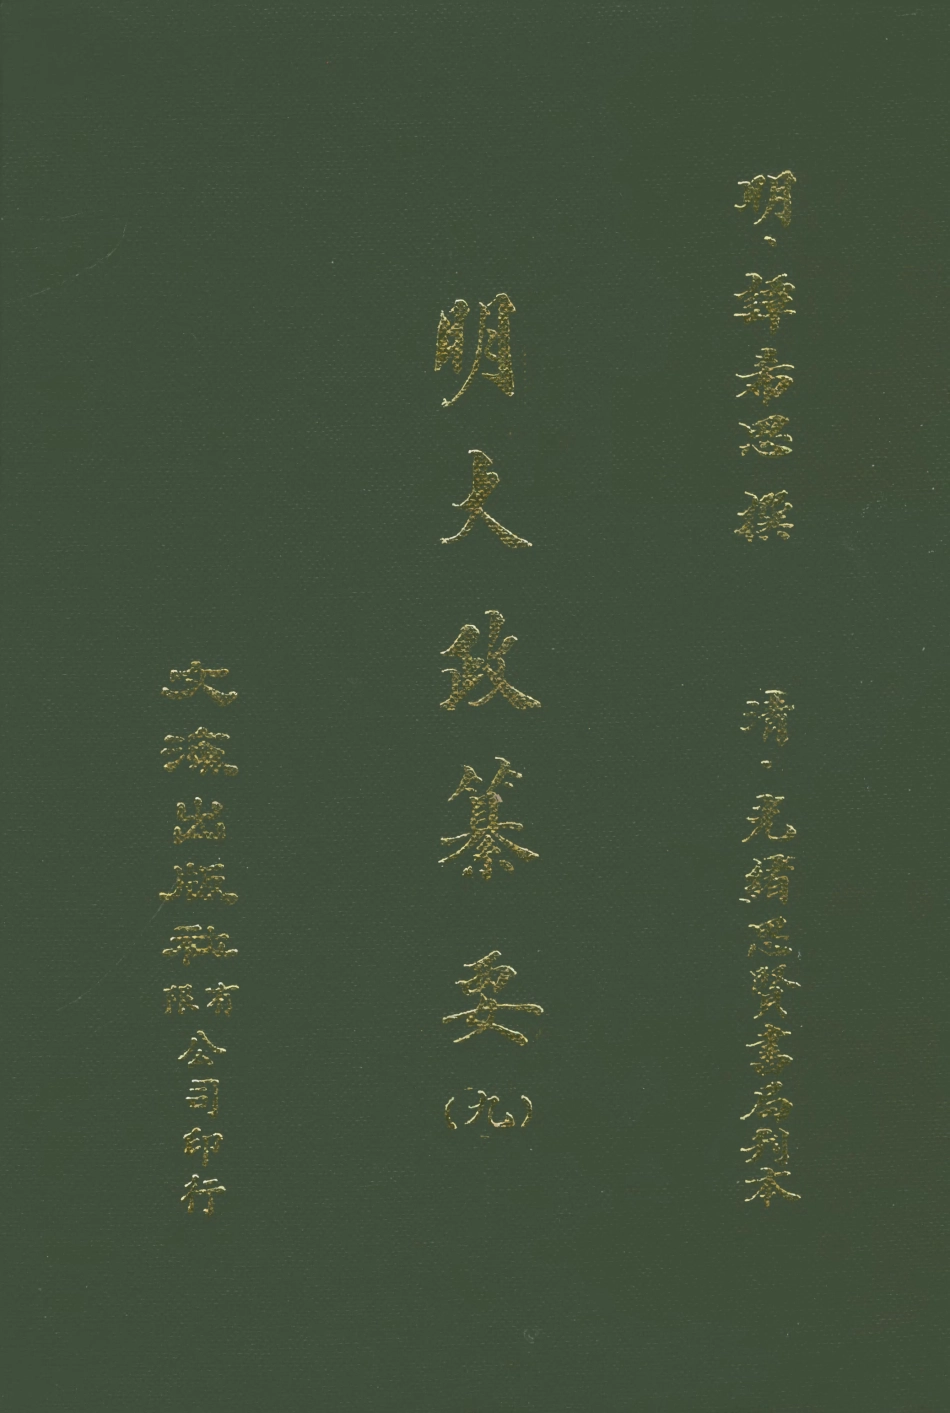 明・譚希思 撰
清・光緒思賢書局刊本
明大政纂要(九)
文海出版社有限公司印行